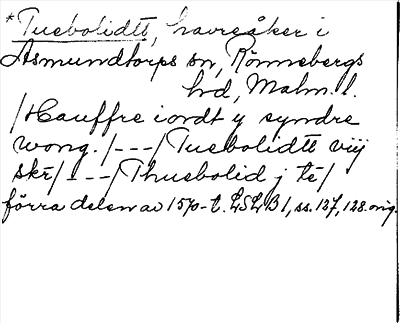 *Tuebolidtt, havreåker i
Asmundtorps sn, Rönnebergs
hd, Malm. l.
/Hauffre iordt y syndre
wong. /---/ Tuebolidtt viij
skr/ ---/ Thuebolid j te/
förra delen av 1570-t. LSLB 1, ss. 127, 128. orig.